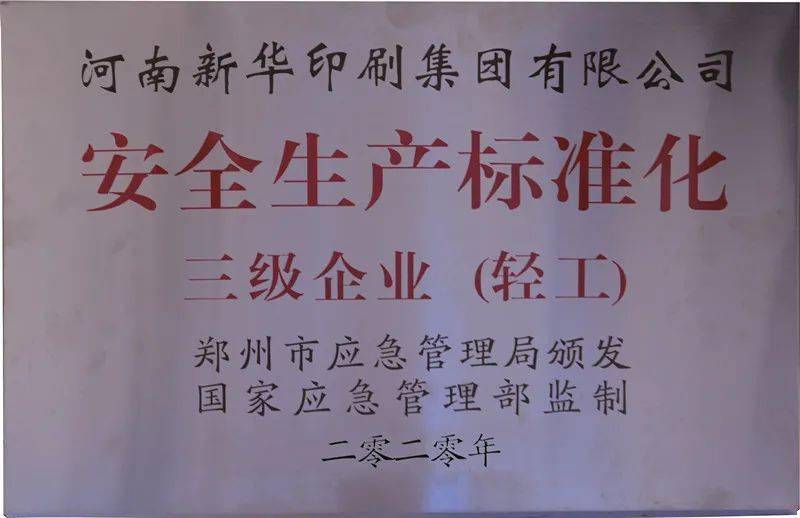 河南新华印刷集团有限公司
安全生产标准化
三级企业（轻工）
郑州市应急管理局颁发
国家应急管理部监制
二零二零年